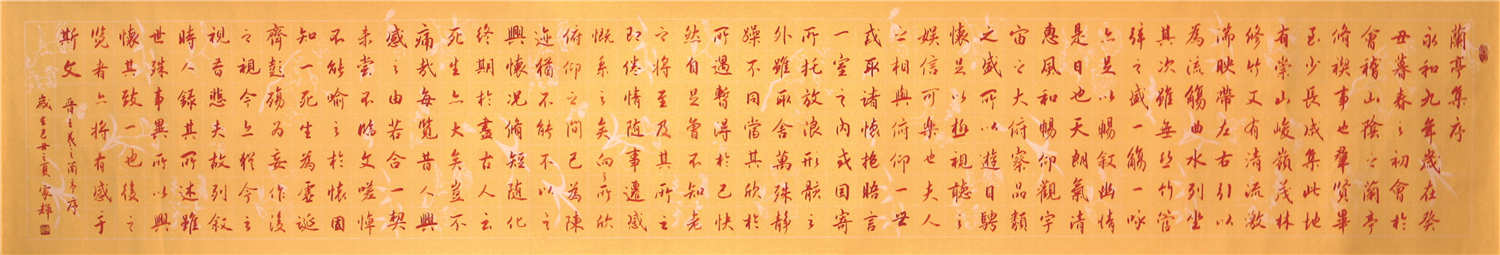 蘭亭集序
永和九年歲在癸
丑暮春之初會於
會稽山陰之蘭亭
脩禊事也羣賢畢
至少長咸集此地
有崇山峻嶺茂林
修竹又有清流激
湍映帶左右引以
為流觴曲水列坐
其次雖無絲竹管
弦之盛一觴一詠
亦足以暢敘幽情
是日也天朗氣清
惠風和暢仰觀宇
宙之大俯察品類
之盛所以遊目騁
懷足以極視聽之
娛信可樂也夫人
之相與俯仰一世
或取諸懷抱晤言
一室之內或因寄
所托放浪形骸之
外雖取舍萬殊靜
躁不同當其欣於
所遇暫得於己快
然自足曾不知老
之將至及其所之
既倦情隨事遷感
慨系之矣向之所欣
俯仰之間已為陳
迹猶不能不以之
興懷況脩短隨化
終期於盡古人云
死生亦大矣豈不
痛哉每覽昔人興
感之由若合一契
未嘗不臨文嗟悼
不能喻之於懷固
知一死生為虛誕
齊彭殤為妄作後
之視今亦猶今之
視昔悲夫故列敘
時人錄其所述雖
世殊事異所以興
懷其致一也後之
覽者亦將有感于
斯文
晉王羲之蘭亭序
歲在己丑之夏家輝